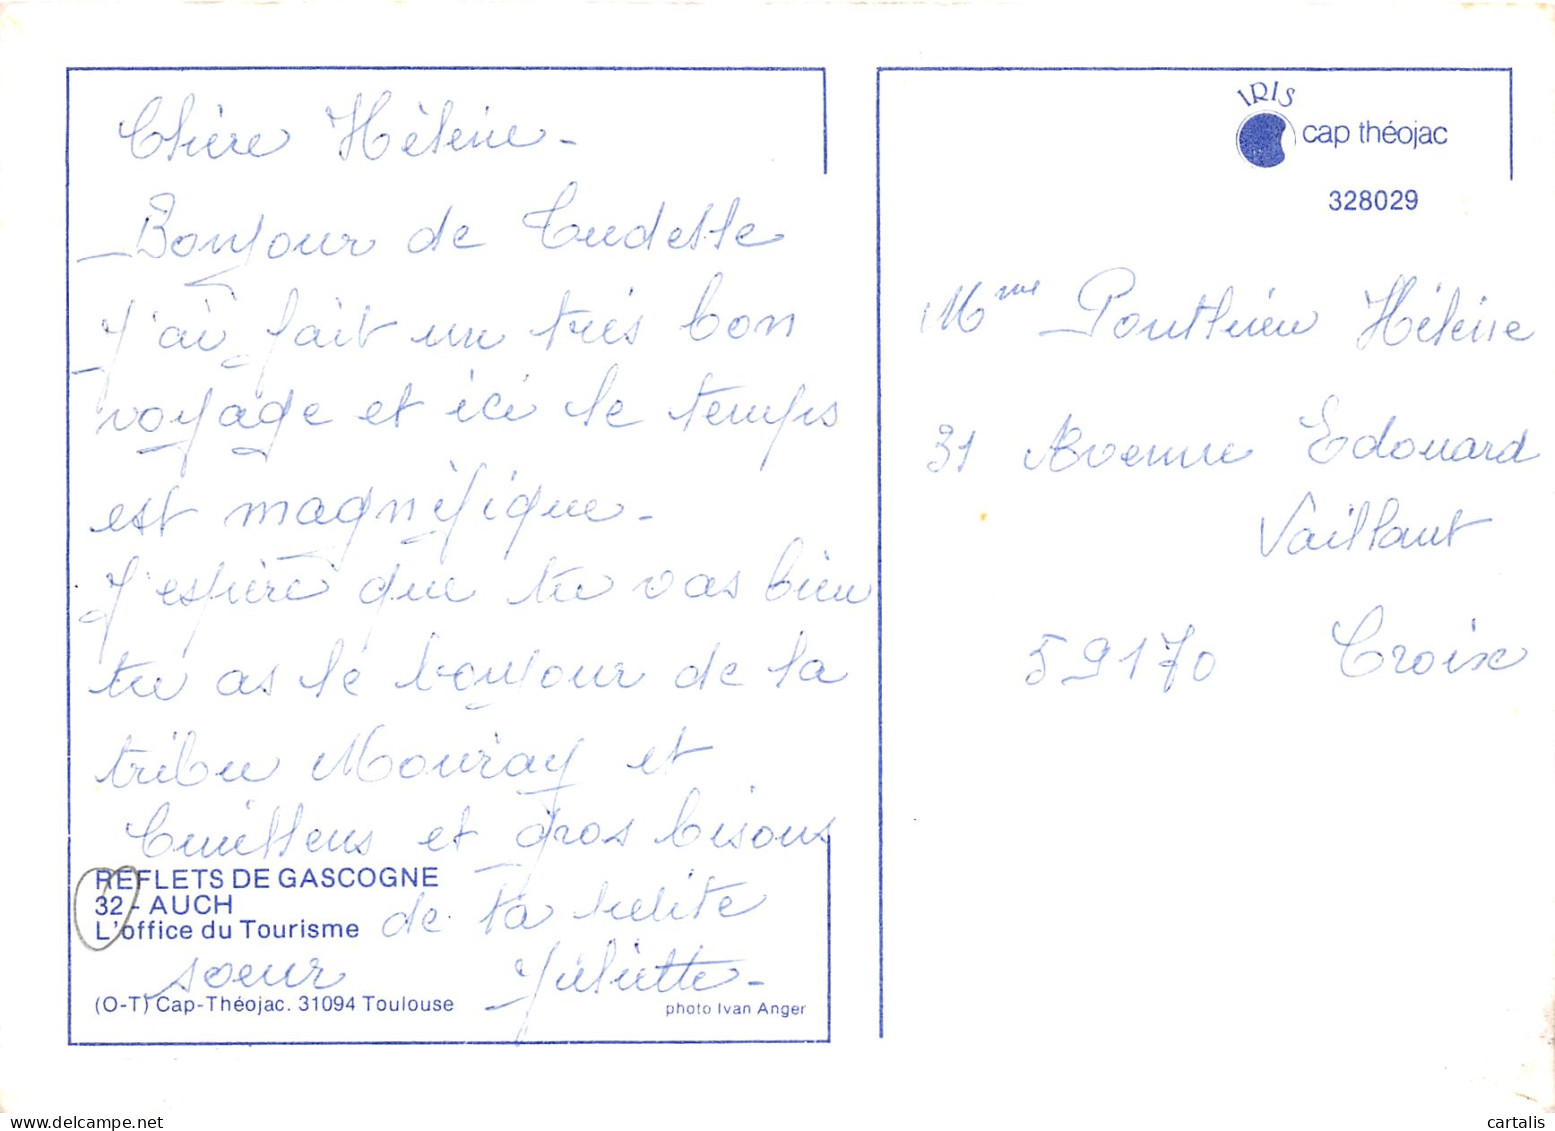 Chère Hélène -
Bonjour de Tudelle
J'ai fait un très bon
voyage et ici le temps
est magnifique -
J'espère que tu vas bien
tu as le bonjour de la
tribu Mouray et
et gros bisous
REFLETS DE GASCOGNE
32 - AUCH
L'office du Tourisme
de ta petite
soeur Juliette -
(O-T) Cap-Théojac. 31094 Toulouse
photo Ivan Anger
IRIS
cap théojac
328029
Mme Ponthieu Hélène
31 Avenue Edouard
Vaillant
59170 Croix
cartalis